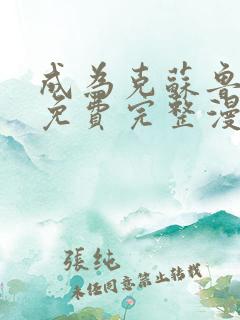 成為克蘇魯
免費完整漫
張純
未經同意禁止轉載